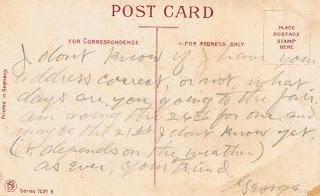 POST CARD
FOR CORRESPONDENCE
FOR ADDRESS ONLY
PLACE
POSTAGE
STAMP
HERE
I dont know if I have your
address correct, or not, what
days are you going to the fair.
am going the 26th for one, and
maybe the 21st I dont know yet,
(it depends on the weather)
as ever, your friend
George.
Printed in Germany
Series 7021 B